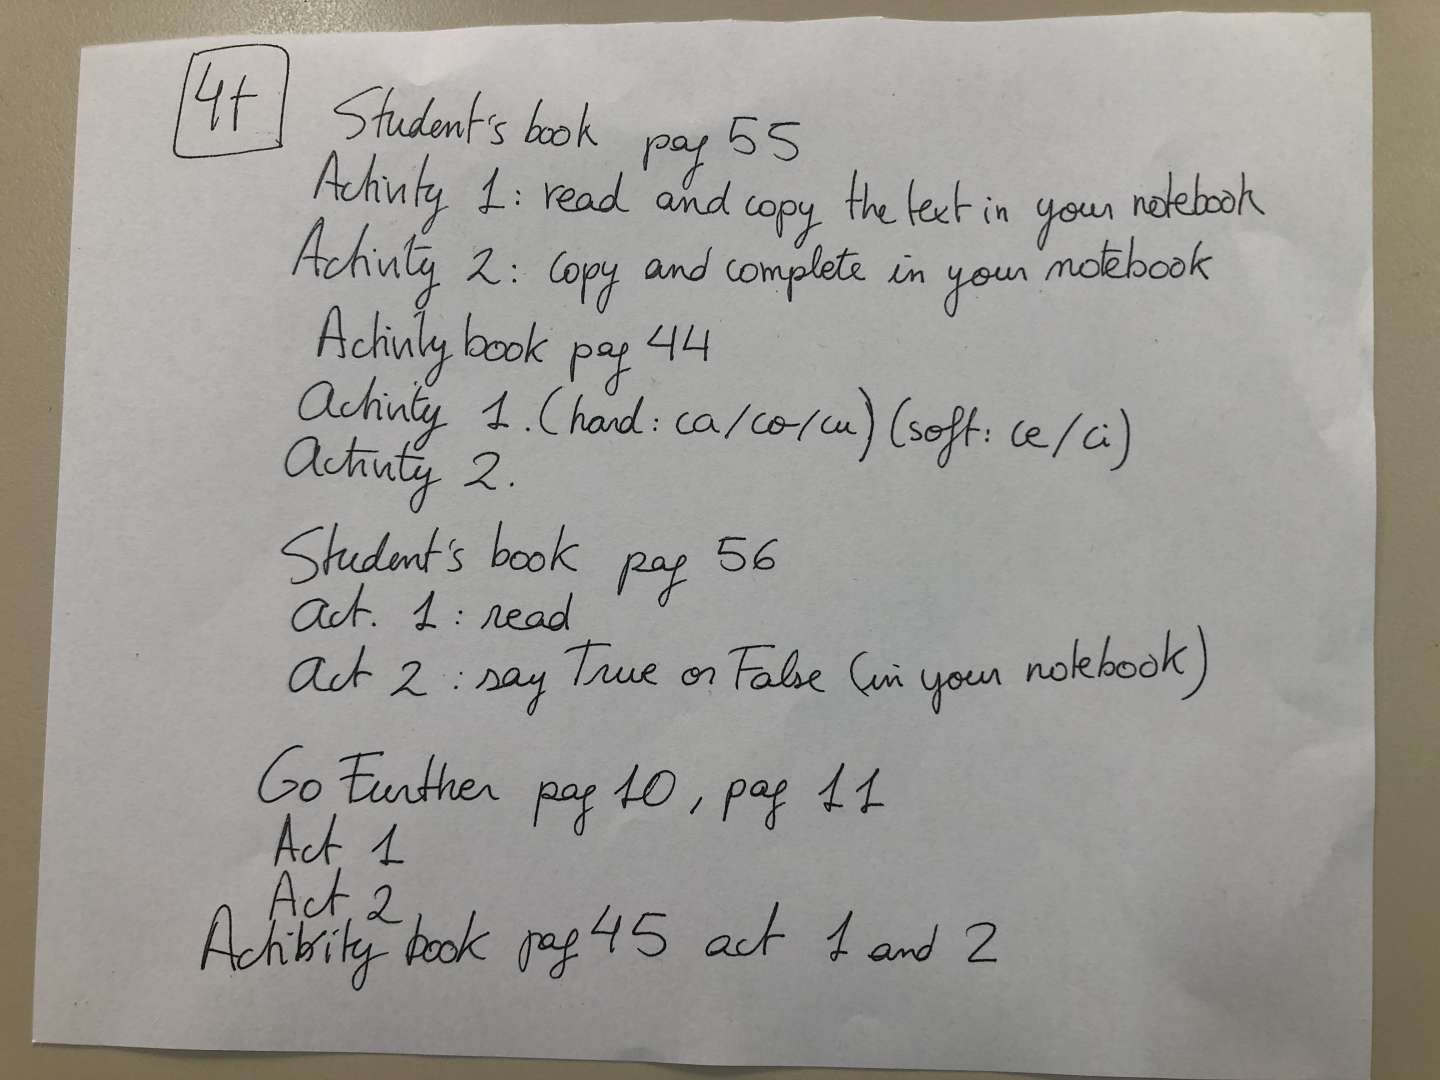 4t
Student's book pag 55
Activity 1: read and copy the text in your notebook
Activity 2: copy and complete in your notebook
Activity book pag 44
Activity 1. (hard: ca/co/cu) (soft: ce/ci)
Activity 2.
Student's book pag 56
Act. 1: read
Act 2: say True or False (in your notebook)
Go Further pag 10, pag 11
Act 1
Act 2
Activity book pag 45 act 1 and 2